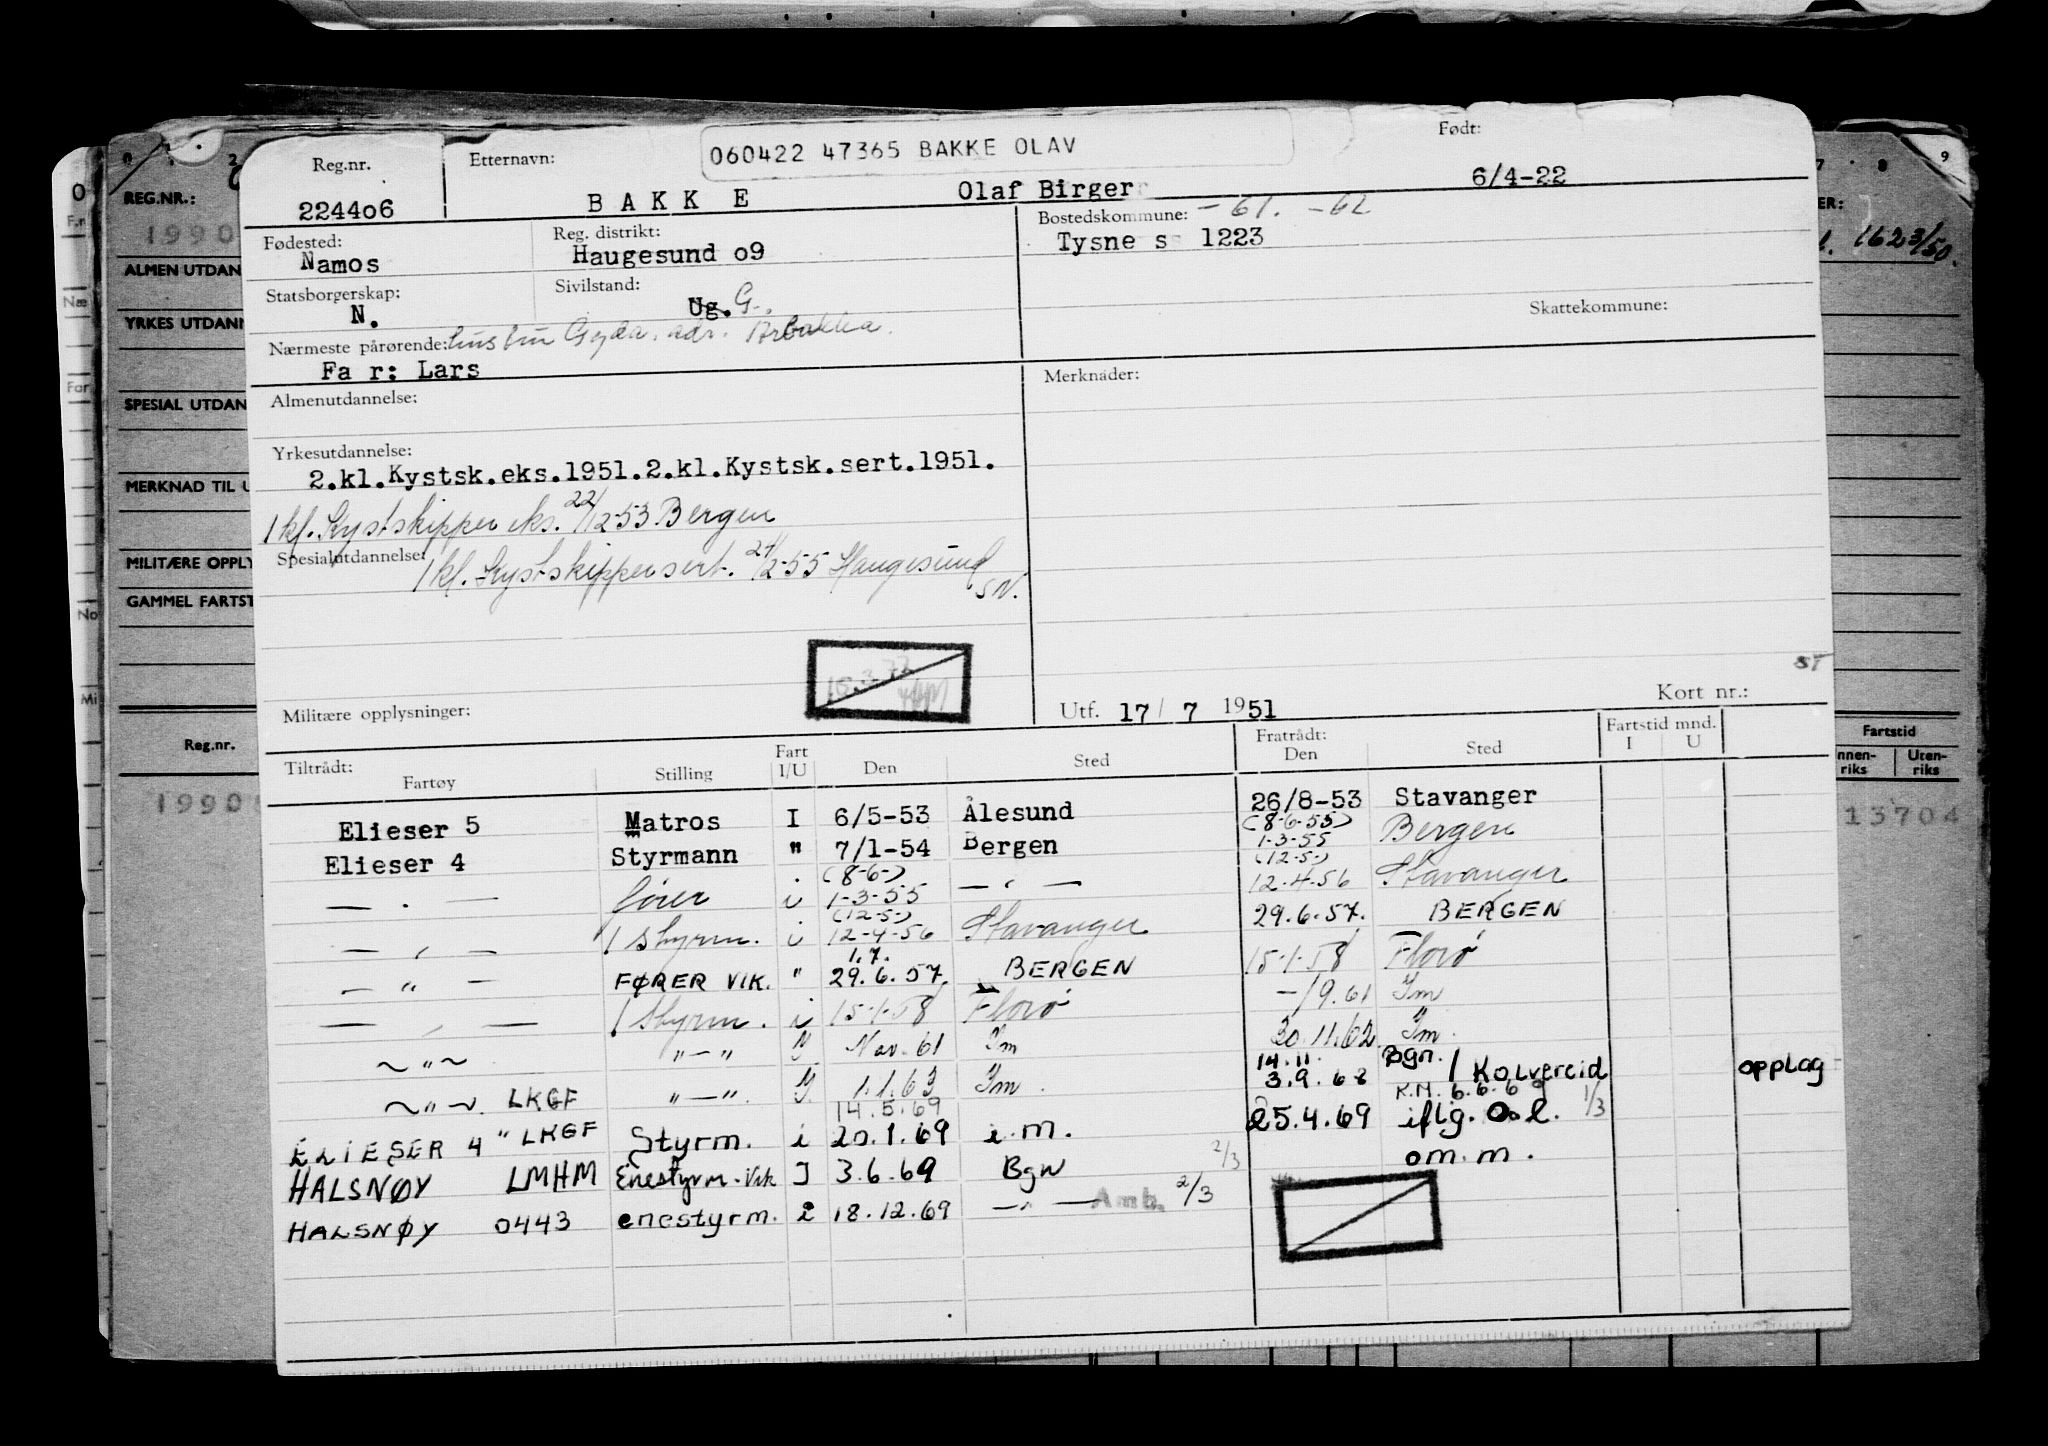 060422 47365 BAKKE OLAV
Født:
Reg.nr.
Etternavn:
224406
BAKKE
Olaf Birger
6/4-22
Fødested:
Namos
Reg. distrikt:
Haugesund o9
Bostedskommune: -61. -62
Tysne s 1223
Statsborgerskap:
N.
Sivilstand:
Ug. G.
Skattekommune:
Nærmeste pårørende: hustru Gyda. adr. Årbakka.
Fa r: Lars
Almenutdannelse:
Merknader:
Yrkesutdannelse:
2.kl.Kystsk.eks.1951.2.kl.Kystsk.sert.1951.
1 kl. Kystskipper eks. 22/12-53 Bergen
Spesialutdannelse:
1 kl. Kystskippersert. 24/2-55 Haugesund
SN.
15.3.73
ST
Militære opplysninger:
Utf. 17/ 7 1951
Kort nr.:
Tiltrådt:
Fartøy
Stilling
Fart I/U
Den
Sted
Fratrådt:
Den
Sted
Fartstid mnd.
I U
Elieser 5 Matros I 6/5-53 Ålesund 26/8-53 Stavanger
Elieser 4 Styrmann " 7/1-54 Bergen (8-6-55) 1-3-55 Bergen
— . — fører i (8-6-) 1-3-55 — " — (12-5-) 12.4.56 Stavanger
— , — 1 styrm. i (12-5-) 12-4-56 Stavanger 29.6.57. BERGEN
— " — FØRER VIK. " 1.7. 29.6.57. BERGEN 15-1-58 Florø
— , — 1 styrm. i 15-1-58 Florø -/9.61 Im
~ " ~ " — " Y Nov. 61 Im 30.11.62 Im.
~ " ~. LKGF " — ". Y. 1.1.63 Im. 14.11. 3.9.68 Bgn. / Kolvereid opplag
ELIESER 4 " LKGF Styrm. i 14.5.69 20.1.69 i.m. 25.4.69 R.M. 6.6.69 iflg. O.l. 1/3
HALSNØY LMHM Enestyrm. Vik I 3.6.69 Bgn 2/3 om.m.
HALSNØY 0443 enestyrm. i 18.12.69 — " — Amb. 2/3
REG.NR.:
1990
ALMEN UTDAN
YRKES UTDANN
SPESIAL UTDAN
MERKNAD TIL U
MILITÆRE OPPLY
GAMMEL FARTST
Reg.nr.
1990
7 8 9
ER:
1623/50.
Fartstid
nnen-
riks
Uten-
riks
13704
O
F.r
Næ
Far
No
Mi